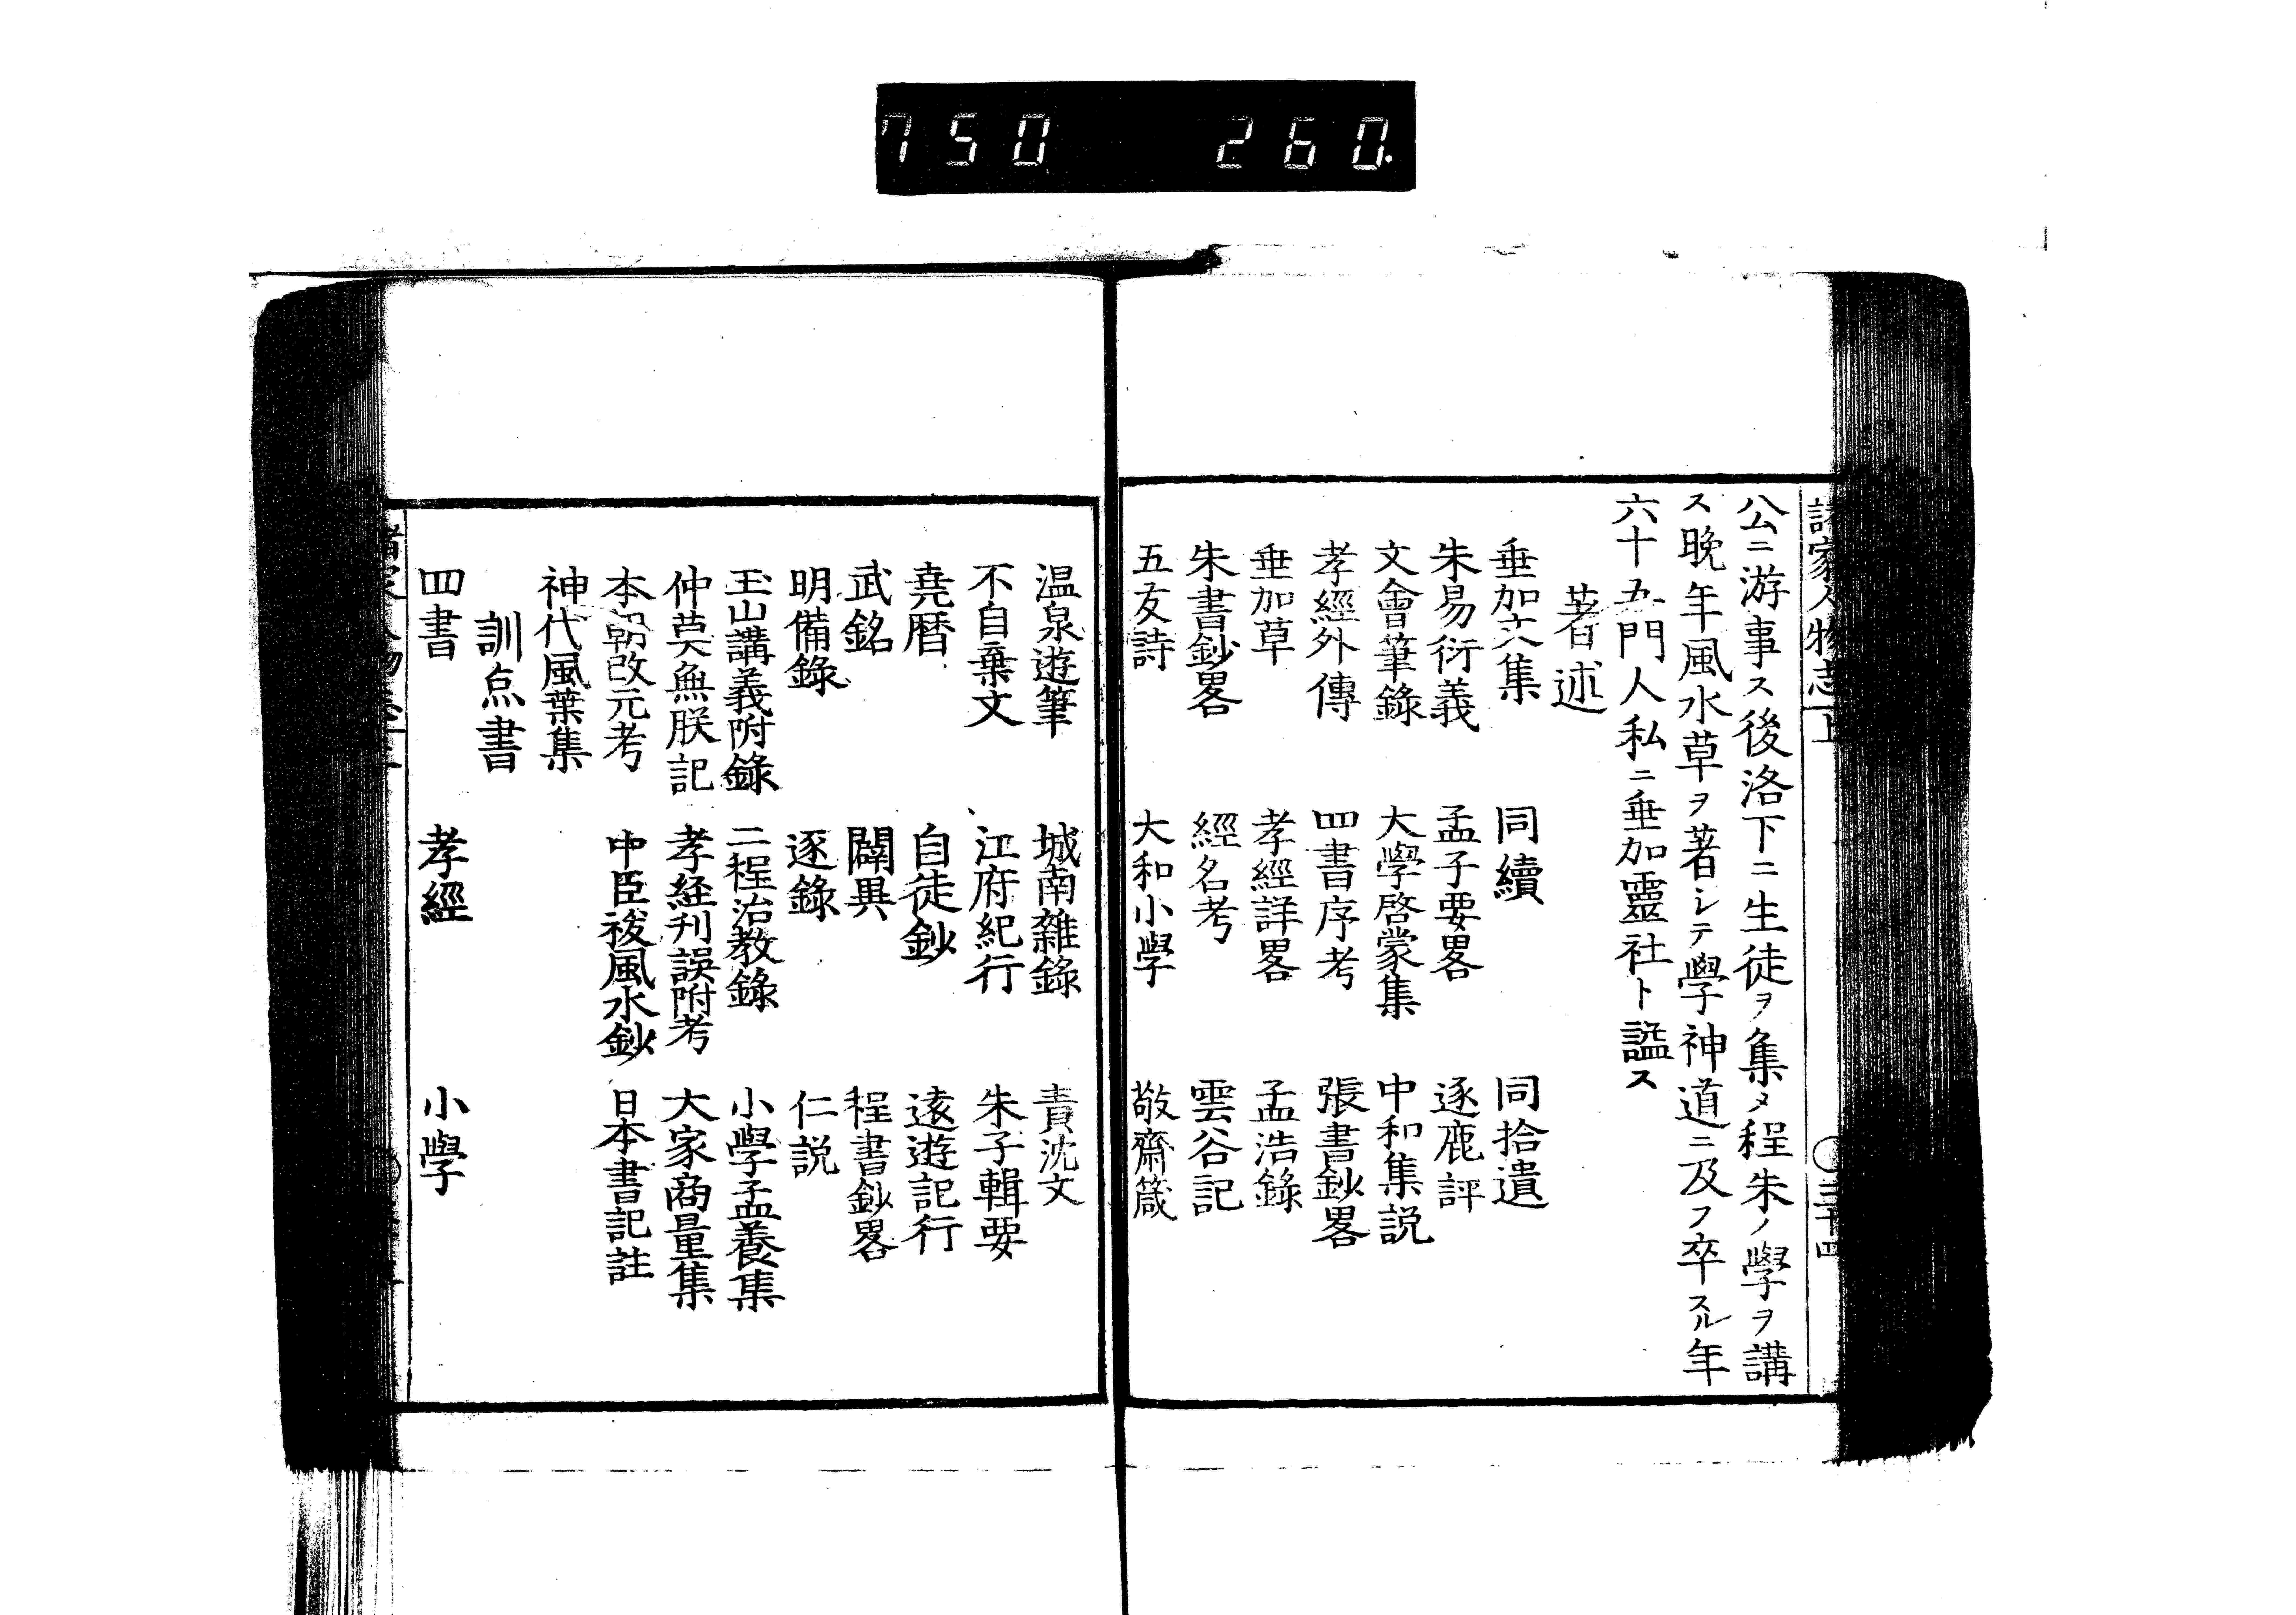 750 260.
諸家人物志上 ○三十四
公ニ游事ス後洛下ニ生徒ヲ集メ程朱ノ學ヲ講
ス晩年風水草ヲ著シテ學神道ニ及フ卒スル年
六十五門人私ニ垂加靈社ト謚ス
著述
垂加文集 同續 同拾遺
朱易衍義 孟子要畧 逐鹿評
文會筆錄 大學啓蒙集 中和集説
孝經外傳 四書序考 張書鈔畧
垂加草 孝經詳畧 孟浩錄
朱書鈔畧 經名考 雲谷記
五友詩 大和小學 敬齋箴
温泉遊筆 城南雜錄 責沈文
不自棄文 江府紀行 朱子輯要
堯暦 自從鈔 遠遊記行
武銘 闢異 程書鈔畧
明備錄 逐錄 仁説
玉山講義附錄 二程治教錄 小學孟養集
仲莫無朕記 孝経刋誤附考 大家商量集
本朝改元考 中臣祓風水鈔 日本書記註
神代風葉集
訓点書
四書 孝經 小學